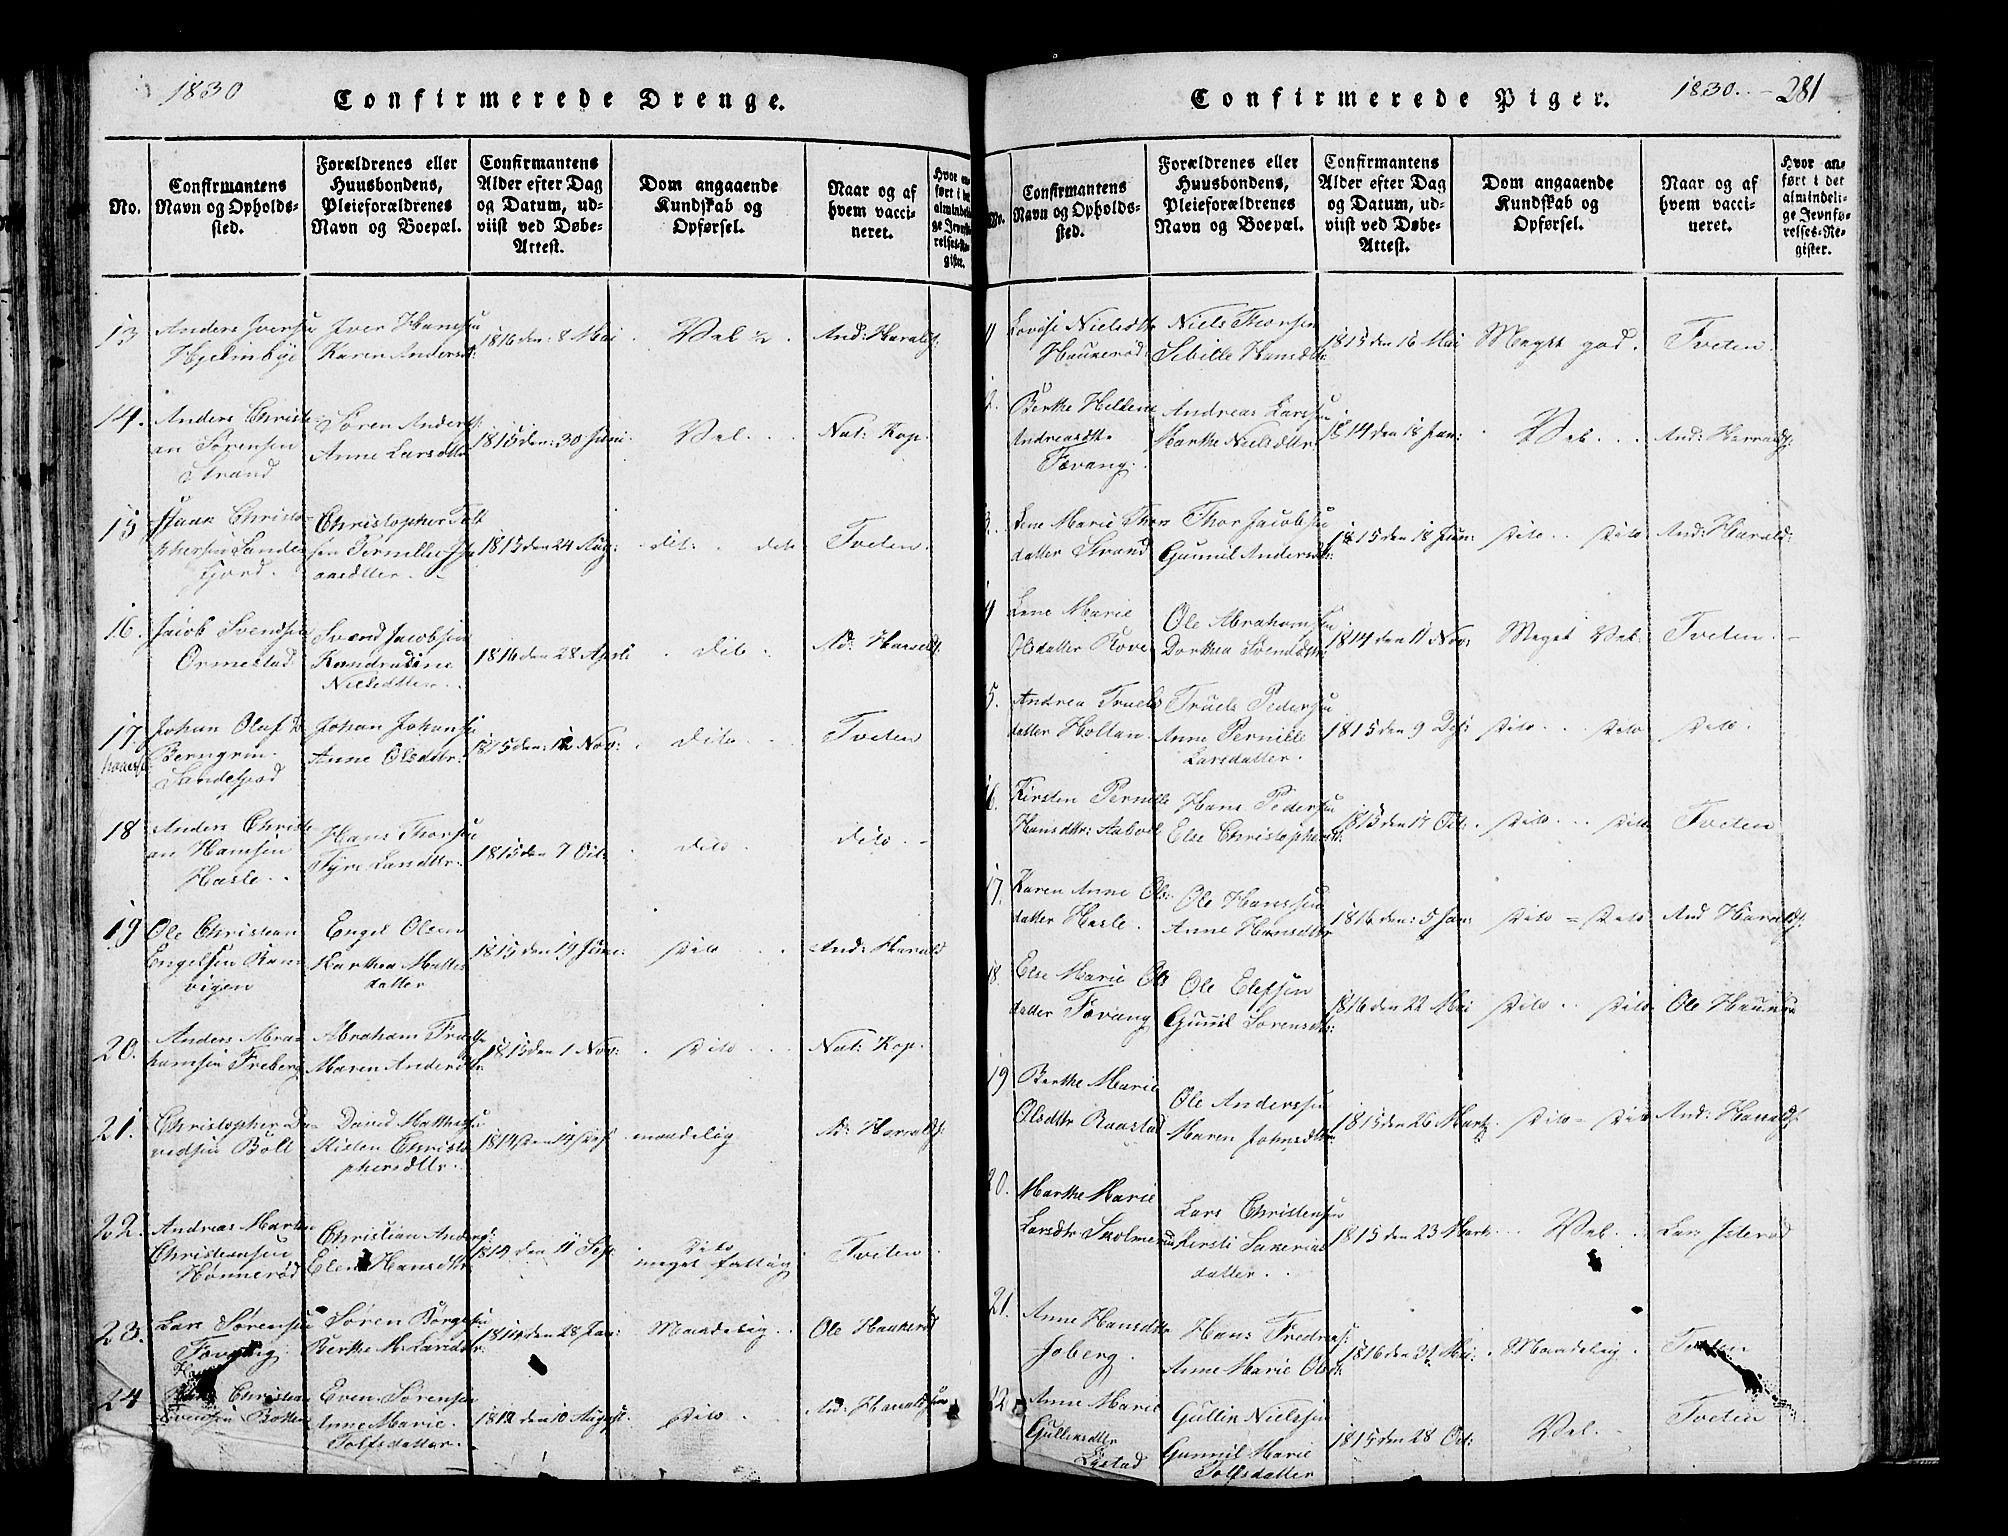 1830
Confirmerede Drenge.
No.
Confirmantens
Navn og Opholds-
sted.
Forældrenes eller
Huusbondens,
Pleieforældrenes
Navn og Boepæl.
Confirmantens
Alder efter Dag
og Datum, ud-
viist ved Døbe-
Attest.
Dom angaaende
Kundskab og
Opførsel.
Naar og af
hvem vacci-
neret.
Hvor an-
ført i det
almindeli-
ge Jevnfø-
relses-Re-
gister.
13
Anders Iversen
Iver Hansen
Karen Andersd
1816 den: 8 Mai
Vel ½
And: Haralds.
14.
Anders Christi
an Sørensen
Strand
Søren Anders:
Anne Larsdtter
1815 den: 30 Juni
Vel
Nat: Kop.
15
Isaak Christo-
phersen Sande
fjord.
Christopher
sen Pernille
1815 den 24 Aug:
dit: det
Tveten.
16.
Jacob Svendsen
Ormestad
Svend Jacobsen
Nielsdtter
1816 den 28 April
dito
Ad: Haralds.
17
Johan Oluf
Sandefjord
Johan Johans
Anne Olsdttr.
1815 den: 12 Nov:
dito
Tveten
18
Anders Christi
an Hansen
Hasle
Hans Thorsen
Larsdttr.
1815 den 7 Oct:
dito
dito
19
Ole Christian
Engelsen Ran
vigen
Engel Olsen
Karthea Mattis
datter
1815 den 19 Juni.
dito
And: Harald
20.
Anders Abra-
hamsen Freberg
Abraham
Maren Andersdttr
1815 den 1 Nov:
dito
Nat: Kop.
21.
Christopher Da-
vidsen Bøll
David Mathisen
Kisten Christo
phersdttr.
maadelig
Ad: Haralds.
22.
Andreas Marten
Christiansen
Hønnerød
Christian Anders:
Elen Hansdttr
1814 den 11 Sep
dito
meget fattig
Tveten
23.
Lars Sørensen
Fevang
Søren Børgesen
Berthe M. Larsdttr.
1814 den 28 Jan:
Maadelig
Ole Haukerød
24
Christian
Evensen
Even Sørensen
Anne Marie
Tolfsdatter.
1812 den 10 August.
dito.
Ad: Haraldsen
Confirmerede Piger.
1830.
281
No.
Confirmantens
Navn og Opholds-
sted.
Forældrenes eller
Huusbondens,
Pleieforældrenes
Navn og Boepæl.
Confirmantens
Alder efter Dag
og Datum, ud-
viist ved Døbe-
Attest.
Dom angaaende
Kundskab og
Opførsel.
Naar og af
hvem vacci-
neret.
Hvor an-
ført i det
almindeli-
ge Jevnfø-
relses-Re-
gister.
Lovise Nielsdtr
Haukerød
Niels Thorsen
Sibille Hansdtr.
1815 den 16 Mai
Meget god.
Tveten.
2.
Berthe Hellene
Andreasdtr
Fevang.
Andreas Larsen
Marthe Nielsdttr.
1814 den 18 Jan:
Vel.
And: Haralds.
3.
Lene Marie Thors
datter Strand
Thor Jacobsen
Gunnil Andersdtr.
1815 den 18 Jun:
dito dito
And: Harald:
Lene Marie
Olsdatter Rove
Ole Abrahamsen
Dorthea Svendsdttr
1814 den 11 Nov:
Meget Vel.
Tveten.
5.
Andrea Truels
datter Holtan
Truels Pedersen
Anne Pernille
Larsdatter.
1815 den 9
dito dito
dito.
6.
Kirsten Pernille
Hansdtr:
Hans Pedersen
Else Christophersdtr.
1815 den 17 Oct:
dito dito
Tveten
17.
Karen Anne Ols:
datter Hasle.
Ole Hanssen
Anne Hansdttr
1816 den: 5 Jan:
dito = dito
And Haralds.
18.
Else Marie Ols
datter Fevang
Ole Elefsen
Gunnil Sørensdtr:
1816 den 22 Mai
dito dito
Ole Hauker
19
Berthe Marie
Olsdttr Raastad
Ole Anderssen
Maren Johnsdttr.
1815 den 26 Martz
dito = dito
And: Haralds.
20.
Marthe Marie
Larsdtr
Lars Christensen
Kirsti Sakerias
datter.
1815 den 23 Marts
Vel.
Lars Isterød
21.
Anne Hansdttr
Joberg.
Hans Fredrics:
Anne Marie Olsdt.
1816 den 31 Mai:
Maadelig.
Tveten
22.
Anne Marie
Gullixsdtr
Gullix Nielssen
Gunnil Marie
Tolfsdatter
1815 den 28 Oct:
Vel.
Tveten